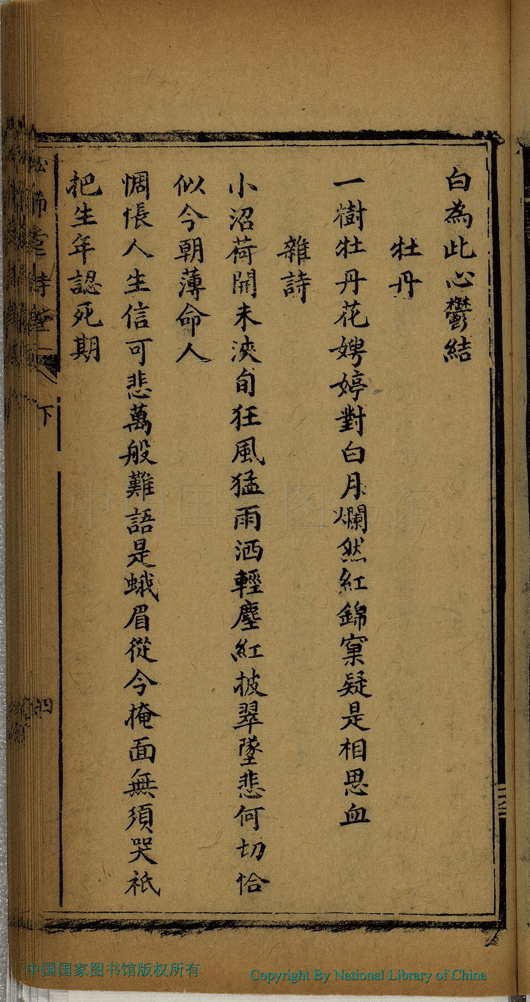 白為此心鬱結
牡丹
一樹牡丹花娉婷對白月爛然紅錦窠疑是相思血
雜詩
小沼荷開未浹旬狂風猛雨洒輕塵紅披翠墜悲何切恰
似今朝薄命人
惆悵人生信可悲萬般難語是蛾眉從今掩面無須哭祇
把生年認死期
下
四
中国国家图书馆版权所有
Copyright By National Library of China